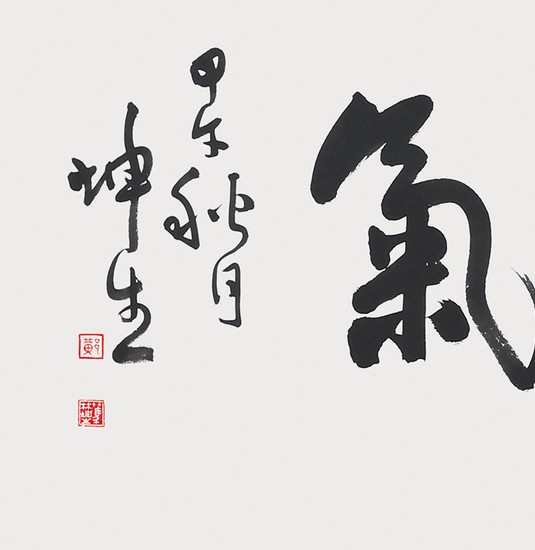 氣
甲午秋月
坤生